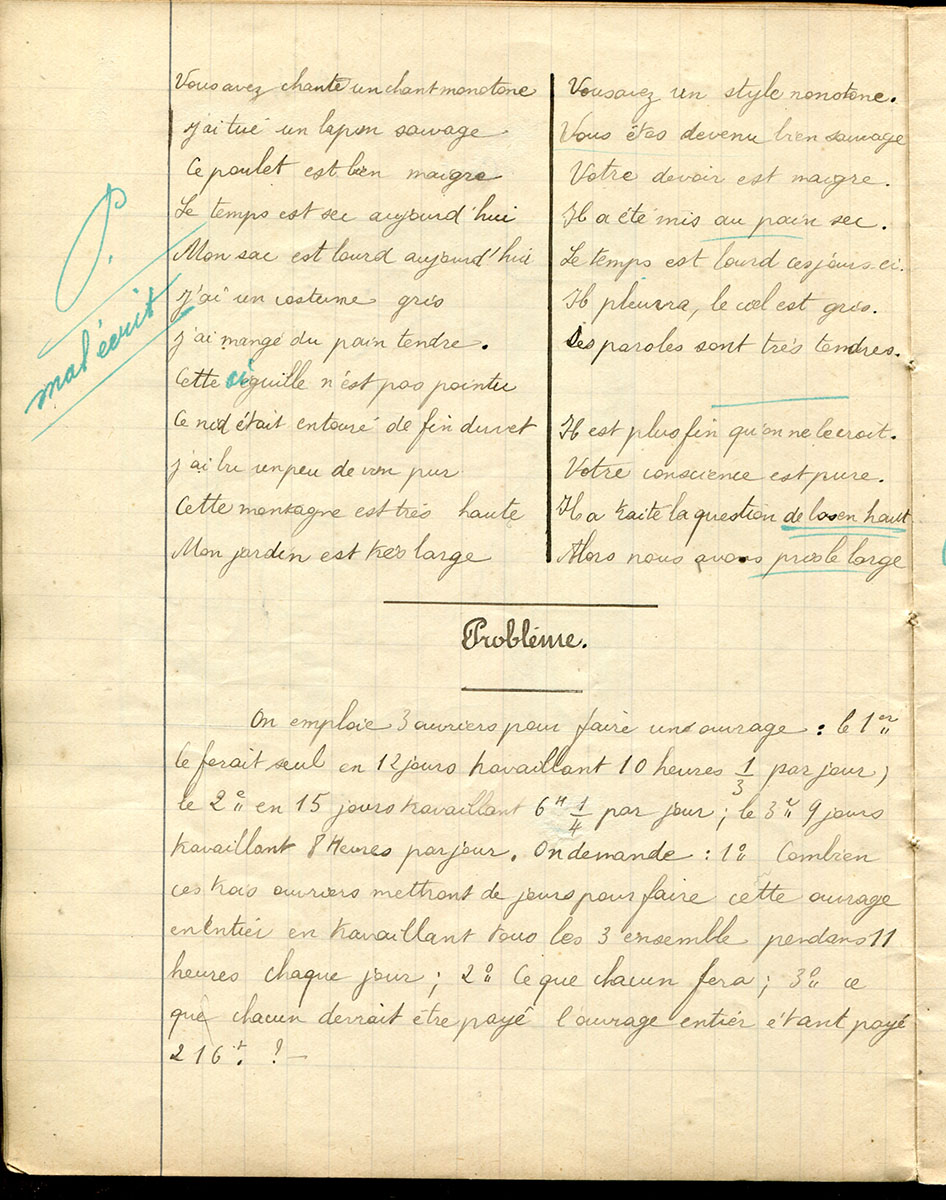 Vous avez chanté un chant monotone
J'ai tué un lapin sauvage
Ce poulet est bien maigre
Le temps est sec aujourd'hui
Mon sac est lourd aujourd'hui
J'ai un costume gris
J'ai mangé du pain tendre.
Cette aiguille n'est pas pointu
Ce nid était entouré de fin duvet
J'ai bu un peu de vin pur
Cette montagne est très haute
Mon jardin est très large
Vous avez un style monotone.
Vous êtes devenu bien sauvage
Votre devoir est maigre.
Il a été mis au pain sec.
Le temps est lourd ces jours-ci.
Il pleuvra, le ciel est gris.
Ses paroles sont très tendres.
Il est plus fin qu'on ne le croit.
Votre conscience est pure.
Il a traité la question de en haut
Alors nous avons pris le large
mal écrit
Problème.
On emploie 3 ouvriers pour faire un ouvrage : le 1er
le ferait seul en 12 jours travaillant 10 heures 1/3 par jour ;
le 2e en 15 jours travaillant 6H 1/4 par jour ; le 3e 9 jours
travaillant 8 Heures par jour. On demande : 1o Combien
ces trois ouvriers mettront de jours pour faire cette ouvrage
en entier en travaillant tous les 3 ensemble pendans 11
heures chaque jour ; 2o Ce que chacun fera ; 3o ce
que chacun devrait être payé l'ouvrage entier étant payé
216f. ? —